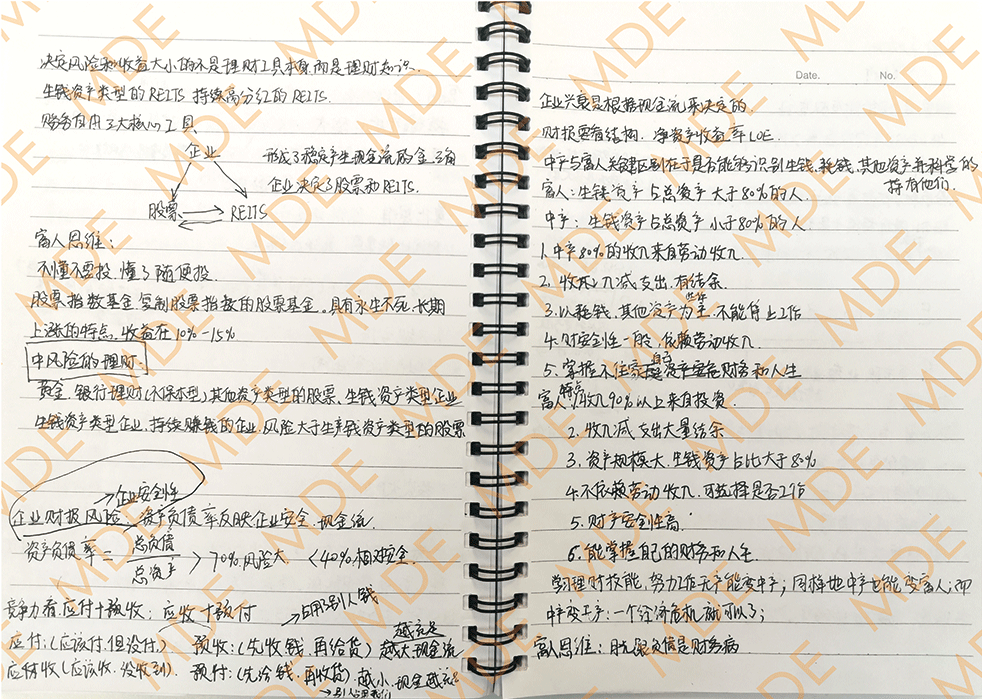 决定风险和收益大小的不是理财工具本身而是理财知识.
生钱资产类型的REITS 持续高分红的REITS.
财务自由三大核心工具
企业
形成了稳定产生现金流的金三角
企业决定了股票和REITS.
股票 REITS
富人思维:
不懂不要投,懂了随便投.
股票指数基金.复制股票指数的股票基金。具有永生不死,长期
上涨的特点,收益在10%-15%
中风险的理财.
黄金 银行理财(不保本型)其他资产类型的股票、生钱资产类型企业
生钱资产类型企业,持续赚钱的企业.风险大于生钱资产类型的股票
→企业安全性
企业财报风险、资产负债率反映企业安全.现金流
资产负债率=总负债/总资产 >70%风险大 <40%相对安全.
竞争力看:应付+预收; 应收+预付 →占用别人钱
应付:(应该付.但没付.) 预收:(先收钱.再给货) 越大.现金流越充足
应收(应该收.没收到) 预付:(先给钱.再收货).越小.现金越充足
→别人占用我们
Date. No.
企业兴衰是根据现金流来决定的.
财报要看结构.净资产收益率LOE.
中产与富人关键区别在于是否能够识别生钱、耗钱、其他资产并科学的
持有他们.
富人:生钱资产占总资产大于80%的人.
中产:生钱资产占总资产小于80%的人.
1.中产80%的收入来自劳动收入
2.收入减支出.有结余
3.以耗钱、其他资产为主.不能停止工作
4.财安全性一般.依赖劳动收入.
5.掌握不住自己财务和人生
富人特点:1.收入90%以上来自投资.
2.收入减支出大量结余
3.资产规模大.生钱资产占比大于80%
4.不依赖劳动收入.可选择是否工作
5.财产安全性高
6.能掌握自己的财务和人生
学理财技能,努力工作无产能变中产,同样地中产也能变富人;而
中产变无产:一个经济危机就可以了;
富人思维:肮脏负债是财务病
MDE